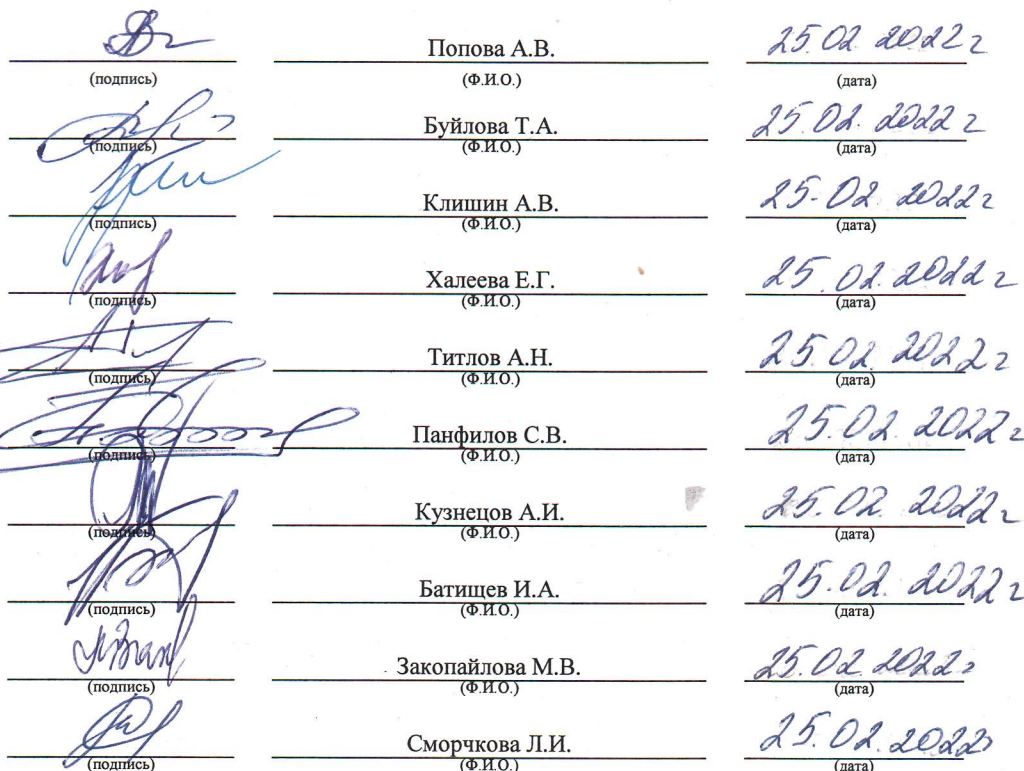 Попова А.В. 25.02.2022 г
(подпись) (Ф.И.О.) (дата)
Буйлова Т.А. 25.02.2022 г
(подпись) (Ф.И.О.) (дата)
Клишин А.В. 25.02.2022 г
(подпись) (Ф.И.О.) (дата)
Халеева Е.Г. 25.02.2022 г
(подпись) (Ф.И.О.) (дата)
Титлов А.Н. 25.02.2022 г
(подпись) (Ф.И.О.) (дата)
Панфилов С.В. 25.02.2022 г
(подпись) (Ф.И.О.) (дата)
Кузнецов А.И. 25.02.2022 г
(подпись) (Ф.И.О.) (дата)
Батищев И.А. 25.02.2022 г
(подпись) (Ф.И.О.) (дата)
Закопайлова М.В. 25.02.2022 г
(подпись) (Ф.И.О.) (дата)
Сморчкова Л.И. 25.02.2022
(подпись) (Ф.И.О.) (дата)